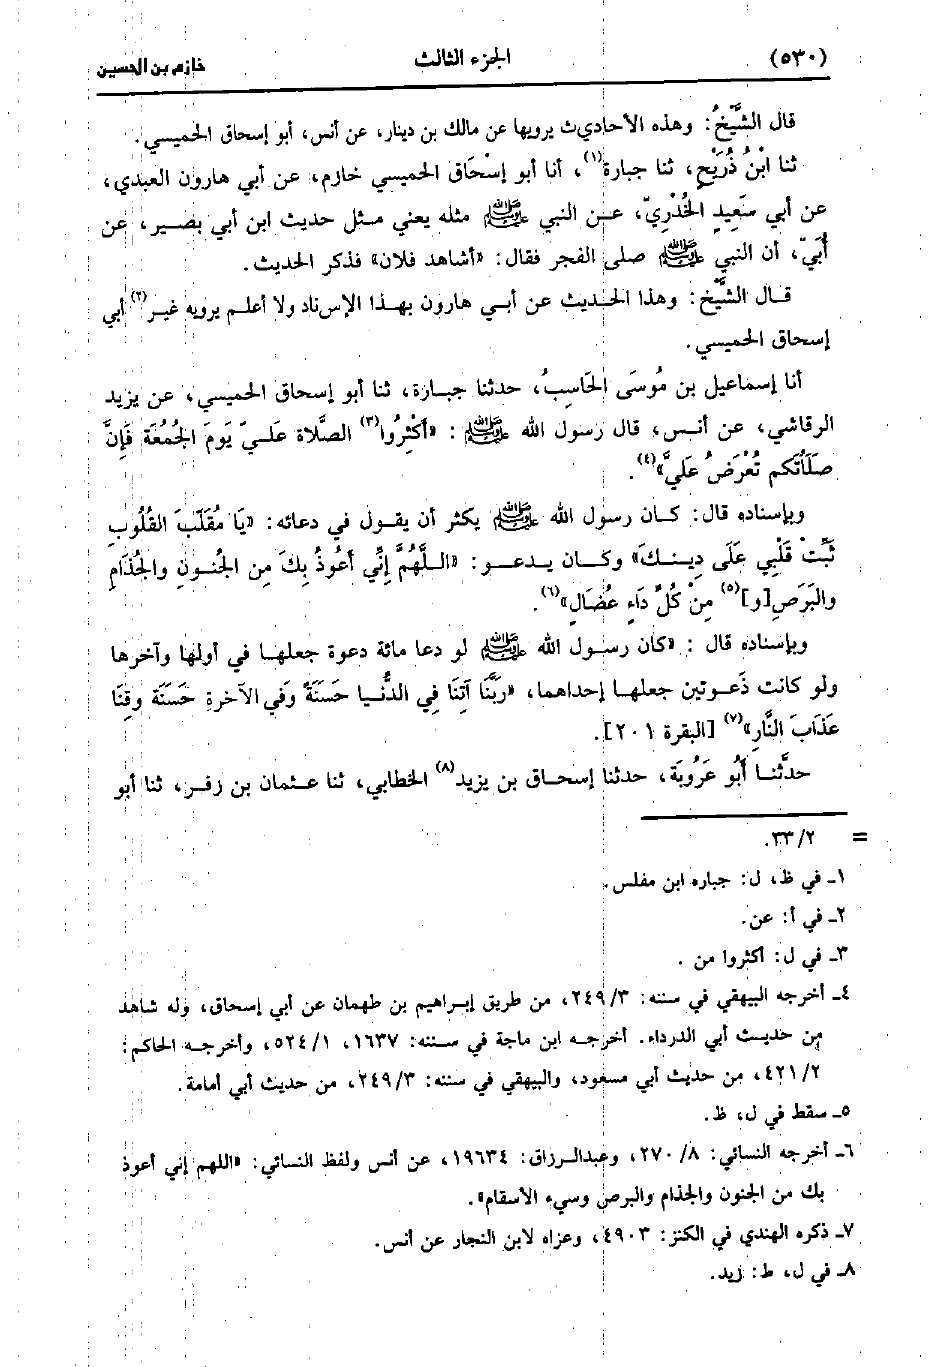 (٥٣٠) الجزء الثالث خازم بن الحسين
قال الشَّيْخُ: وهذه الأحاديث يرويها عن مالك بن دينار، عن أنس، أبو إسحاق الحميسي.
ثنا ابْنُ ذُرَيْحٍ، ثنا جبارة(١)، أنا أبو إسْحَاق الحميسي خازم، عن أبي هارون العبدي،
عن أبي سَعِيدٍ الخُدْرِيّ، عن النبي ﷺ مثله يعني مثل حديث ابن أبي بصير، عن
أُبَيّ، أن النبي ﷺ صلى الفجر فقال: «أشاهد فلان» فذكر الحديث.
قال الشَّيْخُ: وهذا الحديث عن أبي هارون بهذا الإسناد ولا أعلم يرويه غير(٢) أبي
إسحاق الحميسي.
أنا إسماعيل بن مُوسَى الحَاسِبُ، حدثنا جبارة، ثنا أبو إسحاق الحميسي، عن يزيد
الرقاشي، عن أنس، قال رسول الله ﷺ: «أَكْثِرُوا(٣) الصَّلاة عَلَيّ يَوْمَ الجُمُعَة فَإِنَّ
صَلَاتُكم تُعْرَضُ عَلَيَّ»(٤).
وبإسناده قال: كان رسول الله ﷺ يكثر أن يقول في دعائه: «يَا مُقَلّبَ القُلُوبِ
ثَبِّتْ قَلْبِي عَلَى دِينِكَ» وكان يدعو: «اللَّهُمَّ إِنِّي أَعُوذُ بِكَ مِن الجُنونِ والجُذَامِ
والبَرَصِ[و](٥) مِنْ كُلِّ دَاءٍ عُضَالٍ»(٦).
وبإسناده قال : «كان رسول الله ﷺ لو دعا مائة دعوة جعلها في أولها وآخرها
ولو كانت دَعوتين جعلها إحداهما، «رَبَّنَا آتِنَا فِي الدُّنْيا حَسَنَةً وَفي الآخرةِ حَسَنَة وقِنَا
عَذَابَ النَّارِ»(٧) [البقرة ٢٠١].
حدَّثنا أَبُو عَرُوبَة، حدثنا إسحاق بن يزيد(٨) الخطابي، ثنا عثمان بن زفر، ثنا أبو
= ٢/ ٣٣.
١ـ في ظ، ل: جباره ابن مفلس.
٢ـ في أ: عن.
٣ـ في ل: أكثروا من .
٤ـ أخرجه البيهقي في سننه: ٣/ ٢٤٩، من طريق إبراهيم بن طهمان عن أبي إسحاق، وله شاهد
من حديث أبي الدرداء. أخرجه ابن ماجة في سننه: ١٦٣٧، ١/ ٥٢٤، وأخرجه الحاكم:
٢/ ٤٢١، من حديث أبي مسعود، والبيهقي في سننه: ٣/ ٢٤٩، من حديث أبي أمامة.
٥ـ سقط في ل، ظ.
٦ـ أخرجه النسائي: ٨/ ٢٧٠، وعبدالرزاق: ١٩٦٣٤، عن أنس ولفظ النسائي: «اللهم إني أعوذ
بك من الجنون والجذام والبرص وسيء الأسقام».
٧ـ ذكره الهندي في الكنز: ٤٩٠٣، وعزاه لابن النجار عن أنس.
٨ـ في ل، ط: زيد.